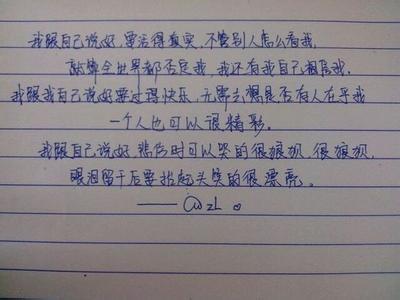 我跟自己说好,要活得真实,不管别人怎么看我,
就算全世界都否定我,我还有我自己相信我。
我跟我自己说好要过得快乐,无需去想是否有人在乎我
一个人也可以很精彩。
我跟自己说好,悲伤时可以哭的很狼狈,很狼狈,
眼泪留干后要抬起头笑的很漂亮。
——@ZL。